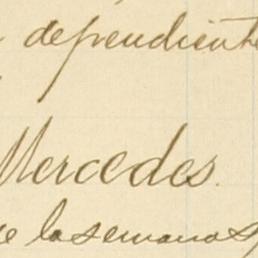 dependiente
Mercedes.
la semana